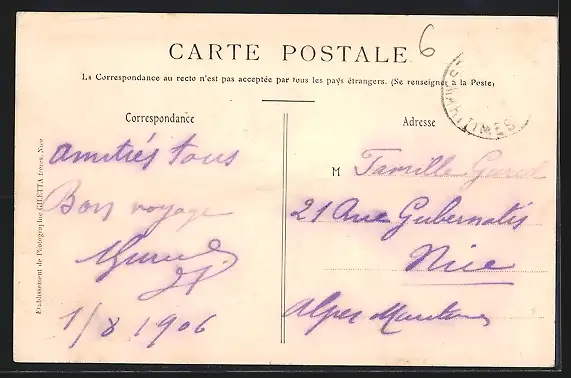 CARTE POSTALE
6
La Correspondance au recto n'est pas acceptée par tous les pays étrangers. (Se renseigner à la Poste)
MARITIMES
Correspondance
amitiés tous
Bon voyage
1/8 1906
Adresse
M Famille
21 Aue Gubernatis
Nice
Alpes
Etablissement de Photographie GILETTA frères, Nice